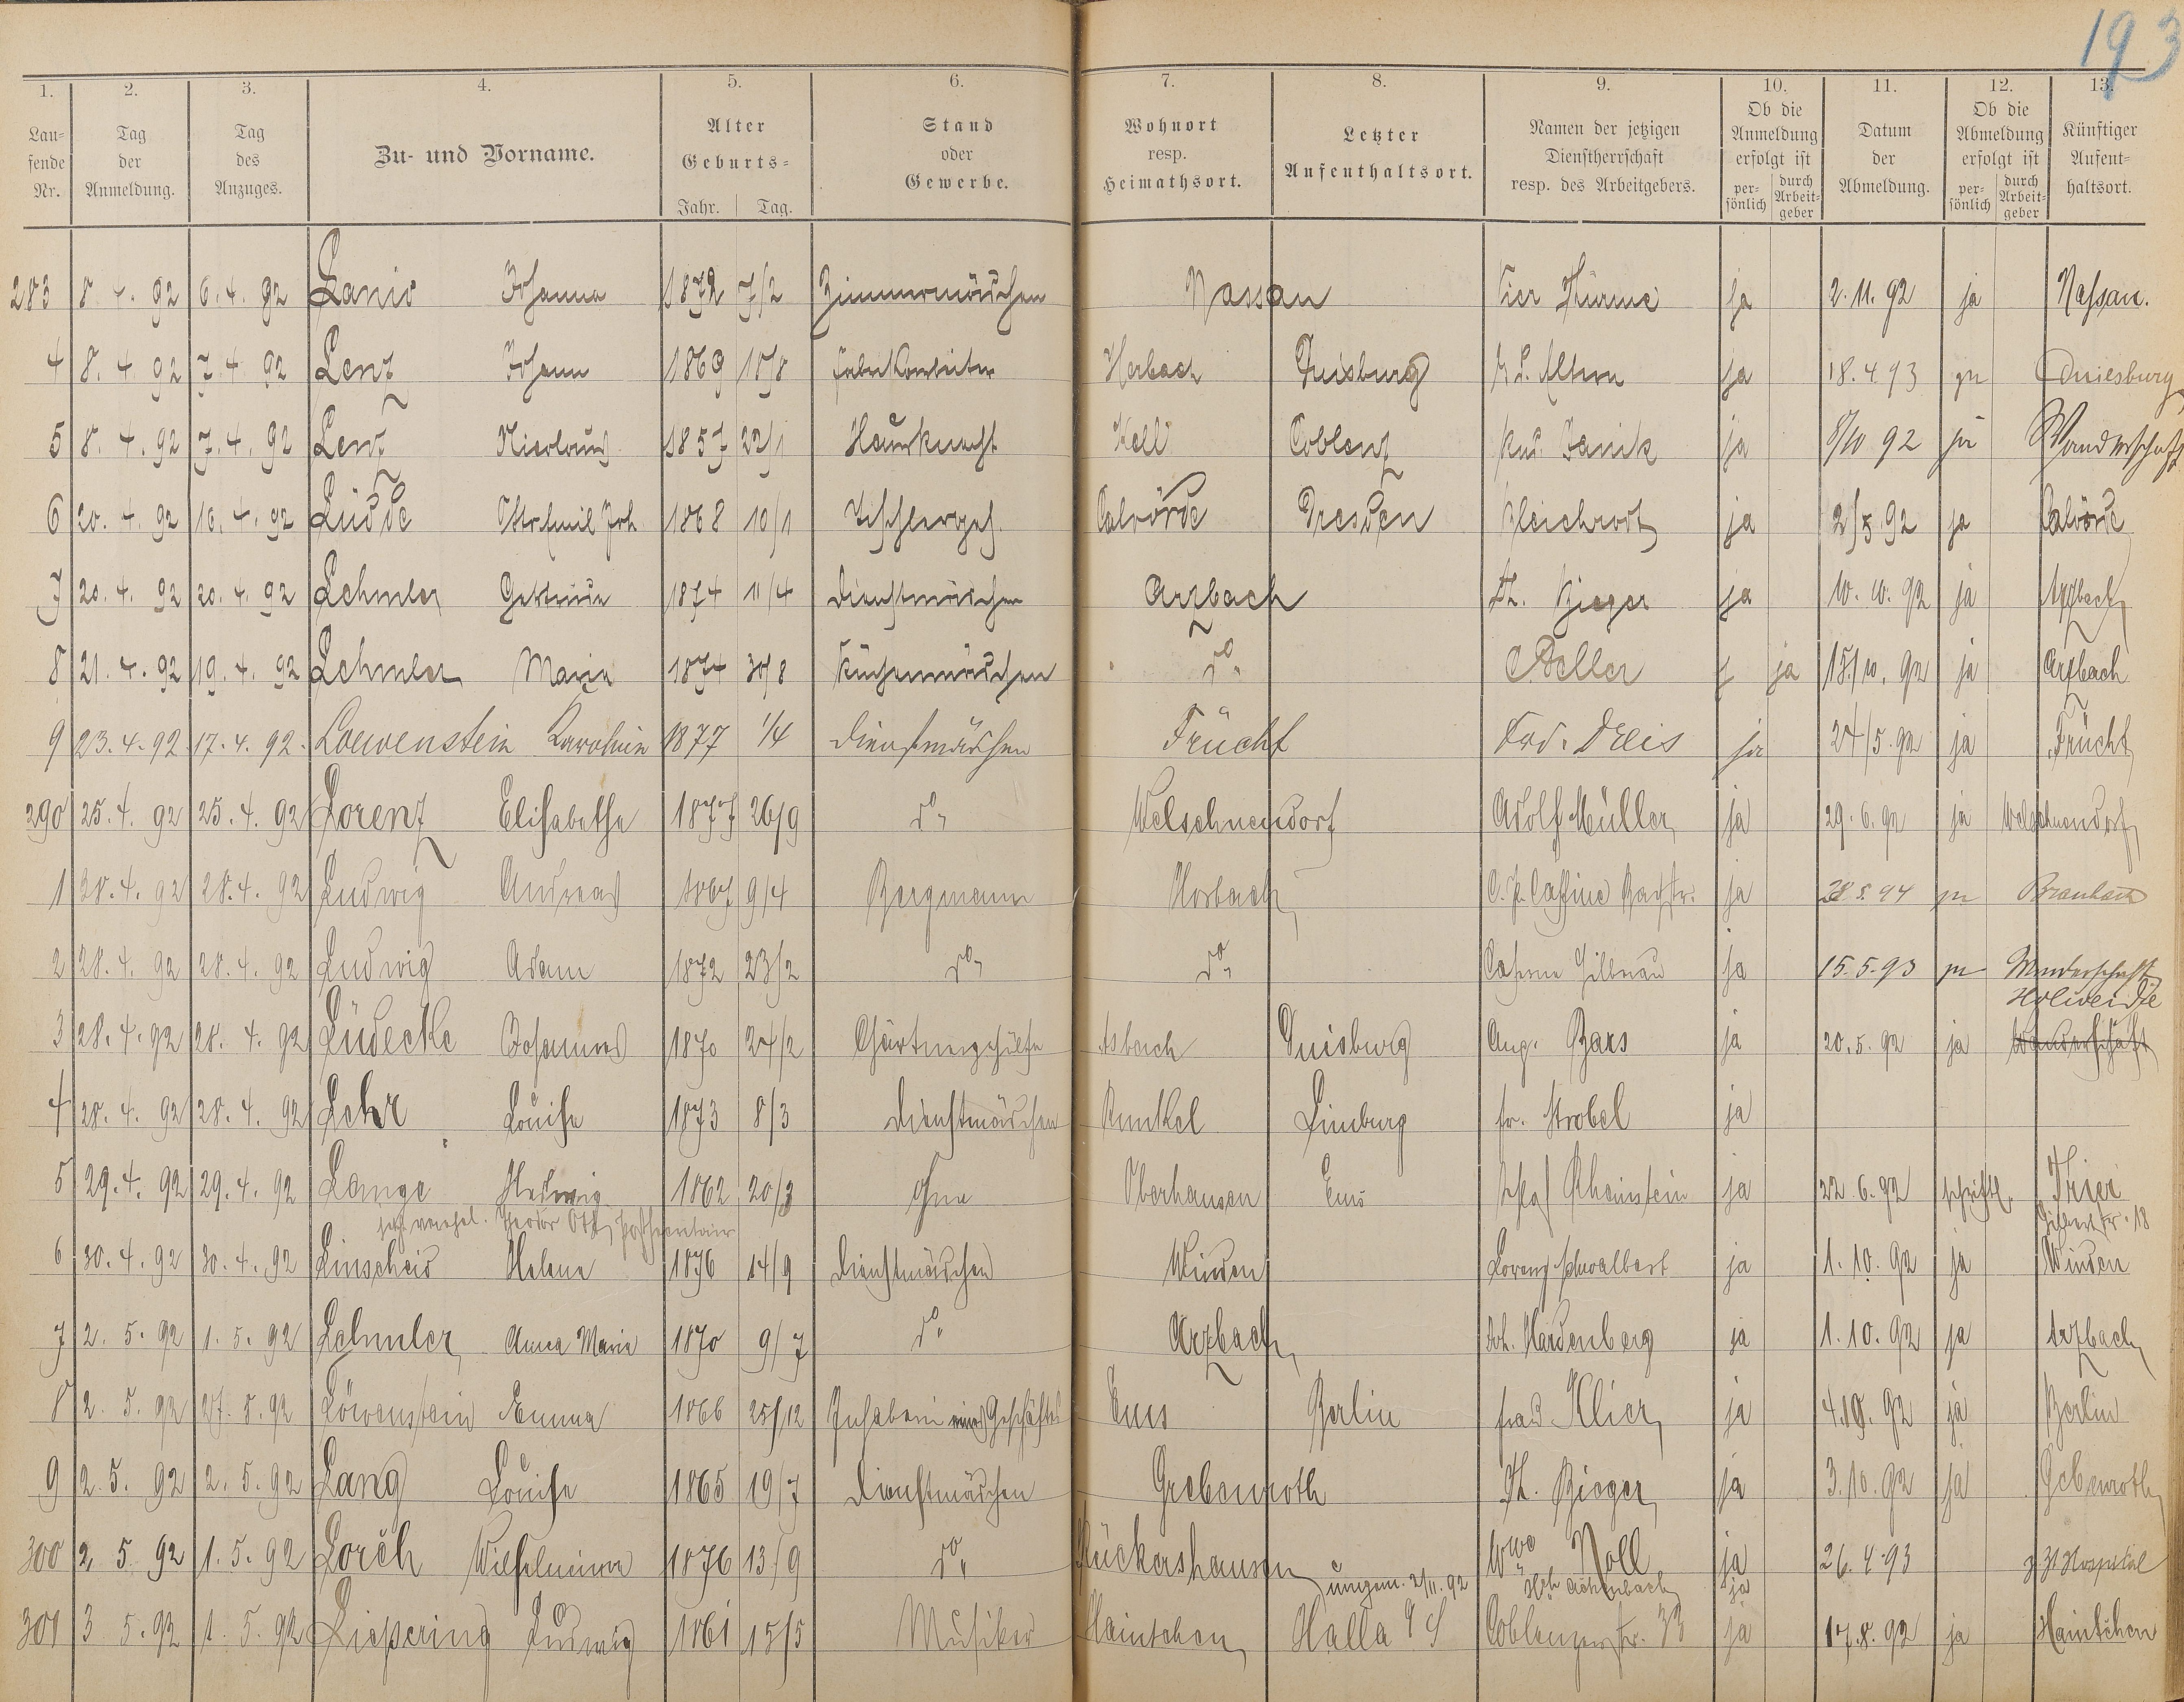 193
1. 2. 3. 4. 5. 6. 7. 8. 9. 10. 11. 12. 13.
Lau-fende Nr. Tag der Anmeldung. Tag des Anzuges. Zu- und Vorname. Alter Geburts- Jahr. Tag. Stand oder Gewerbe. Wohnort resp. Heimathsort. Letzter Aufenthaltsort. Namen der jetzigen Dienstherrschaft resp. des Arbeitgebers. Ob die Anmeldung erfolgt ist per-sönlich durch Arbeit-geber Datum der Abmeldung. Ob die Abmeldung erfolgt ist per-sönlich durch Arbeit-geber Künftiger Aufent-haltsort.
283 8. 4. 92 6. 4. 92 Johanna 1872 7/2 Zimmermädchen Nassau Vier Thürme ja 2. 11. 92 ja Nassau.
4 8. 4. 92 7. 4. 92 Lenz Johann 1869 18/8 Fabrikarbeiter Horbach Duisburg ja 18. 4 93 ja Duisburg
5 8. 4. 92 7. 4. 92 Lenz 1857 22/1 Hausknecht Kell Coblenz ja 8/10 92 ja Wanderschaft
6 20. 4. 92 16. 4. 92 Lüdde 1868 10/1 Tischlerges. Calvörde Dresden ja 2/5 92 ja Calvörde
7 20. 4. 92 20. 4. 92 Lehmler Gertrude 1874 11/4 Dienstmädchen Arzbach Th. Bieger ja 10. 10. 92 ja Arzbach
8 21. 4. 92 19. 4. 92 Lehmler Maria 1874 30/8 Küchenmädchen do. ja 15/10. 92 ja Arzbach
9 23. 4. 92 17. 4. 92. Loewenstein Karoline 1877 1/4 Dienstmädchen Frücht ja 24/5. 92 ja Frücht
290 25. 4. 92 25. 4. 92 Lorenz Elisabetha 1877 26/9 do Welschneudorf Adolf Müller ja 29. 6. 92 ja Welschneudorf
1 28. 4. 92 28. 4. 92 Ludwig Andreas 1867 9/4 Bergmann Horbach ja 28. 5. 94 ja Braubach
2 28. 4. 92 28. 4. 92 Ludwig Adam 1872 23/2 do do ja 15. 5. 93 ja Wanderschaft
3 28. 4. 92 28. 4. 92 Lüdecke Johannes 1870 24/2 Gärtnergehülfe Asbach Duisburg Aug. Bars ja 20. 5. 92 ja Holweide Wanderschaft
4 28. 4. 92 28. 4. 92 Lehr Louise 1873 8/3 Dienstmädchen Runkel Limburg Fr. Strobel ja
5 29. 4. 92 29. 4. 92 Lange Hedwig 1862 20/3 ohne Oberhausen Ems Schloß Rheinstein ja 22. 6. 92 schriftl. Trier
jetzt verehel. Theodor Ott
6 30. 4. 92 30. 4. 92 Linscheid Helene 1876 14/9 Dienstmädchen Winden Lorenz Schwalbert ja 1. 10. 92 ja Winden
7 2. 5. 92 1. 5. 92 Lehmler Anna Maria 1870 9/7 do Arzbach Joh. Hardenberg ja 1. 10. 92 ja Arzbach
8 2. 5. 92 27. 5. 92 Löwenstein Emma 1866 25/12 Inhaberin eines Geschäftes Ems Berlin Klier ja 4. 10. 92 ja Berlin
9 2. 5. 92 2. 5. 92 Lang Louise 1865 19/7 Dienstmädchen Grebenroth Th. Bieger ja 3. 10. 92 ja Gebenroth
300 2 5. 92 1. 5. 92 Lorch Wilhelmine 1876 13/9 do Rückershausen Wwe Noll ja 26. 4. 93 z. Zt Hospital
umgem. 2/11. 92 Achenbach ja
301 3. 5. 92 1. 5. 92 Liessering Ludwig 1861 15/5 Musiker Haintchen Halla Coblenzerstr. 33 ja 17. 8. 92 ja Haintchen